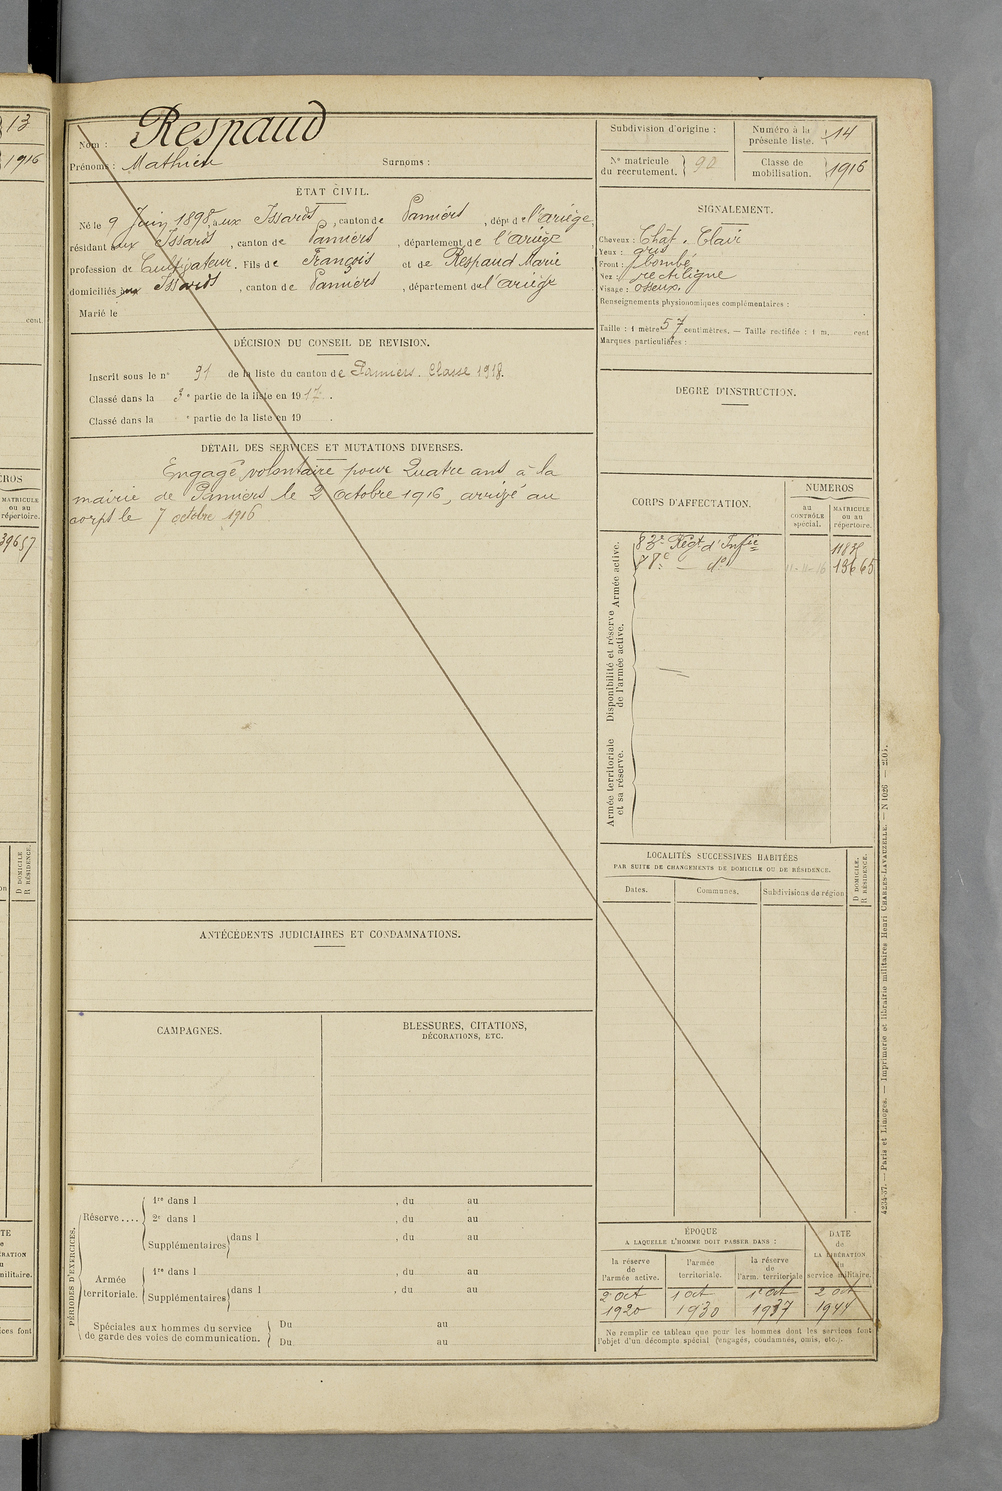 13
1916
cent
MATRICULE
ou au
répertoire.
39657
D DOMICILE
R RÉSIDENCE.
Nom : Respaud
Prénoms : Mathieu Surnoms :
ÉTAT CIVIL.
Né le 9 Juin 1898, aux Issards, canton de Pamiers, dépt de l'Ariège,
résidant aux Issards, canton de Pamiers, département de l'Ariège
profession de Cultivateur. Fils de François et de Respaud Marie
domiciliés aux Issards, canton de Pamiers, département de l'Ariège
Marié le
DÉCISION DU CONSEIL DE REVISION.
Inscrit sous le n° 91 de la liste du canton de Pamiers. Classe 1918.
Classé dans la 3e partie de la liste en 1917.
Classé dans la e partie de la liste en 19 .
DÉTAIL DES SERVICES ET MUTATIONS DIVERSES.
Engagé volontaire pour Quatre ans à la
mairie de Pamiers le 2 Octobre 1916, arrivé au
corps le 7 octobre 1916
ANTÉCÉDENTS JUDICIAIRES ET CONDAMNATIONS.
CAMPAGNES.
BLESSURES, CITATIONS,
DÉCORATIONS, ETC.
PÉRIODES D'EXERCICES.
Réserve....
1re dans l , du au
2e dans l , du au
Supplémentaires dans l , du au
Armée
territoriale.
1re dans l , du au
Supplémentaires dans l , du au
Spéciales aux hommes du service
de garde des voies de communication.
Du au
Du au
Subdivision d'origine :
Numéro à la
présente liste. 14
N° matricule
du recrutement. 92
Classe de
mobilisation. 1916
SIGNALEMENT.
Cheveux : Chât. Clair
Yeux : gris
Front : bombé
Nez : rectiligne
Visage : osseux.
Renseignements physionomiques complémentaires :
Taille : 1 mètre 57 centimètres. — Taille rectifiée : 1 m. cent
Marques particulières :
DEGRÉ D'INSTRUCTION.
CORPS D'AFFECTATION.
NUMÉROS
au
CONTRÔLE
spécial.
MATRICULE
ou au
répertoire.
Armée active.
83e Régt d'Infie
88e — do 13665
Disponibilité et réserve
de l'armée active.
Armée territoriale
et sa réserve.
LOCALITÉS SUCCESSIVES HABITÉES
PAR SUITE DE CHANGEMENTS DE DOMICILE OU DE RÉSIDENCE.
D DOMICILE.
R RÉSIDENCE.
Dates.
Communes.
Subdivisions de région
ÉPOQUE
A LAQUELLE L'HOMME DOIT PASSER DANS :
DATE
de
LA LIBÉRATION
du
service militaire.
la réserve
de
l'armée active.
l'armée
territoriale.
la réserve
de
l'arm. territoriale
2 Oct
1920
1 Oct
1930
1 Oct
1937
2 Oct
1944
Ne remplir ce tableau que pour les hommes dont les services font
l'objet d'un décompte spécial (engagés, condamnés, omis, etc.).
4234-37. — Paris et Limoges. — Imprimerie et librairie militaires Henri CHARLES-LAVAUZELLE. — N 1026